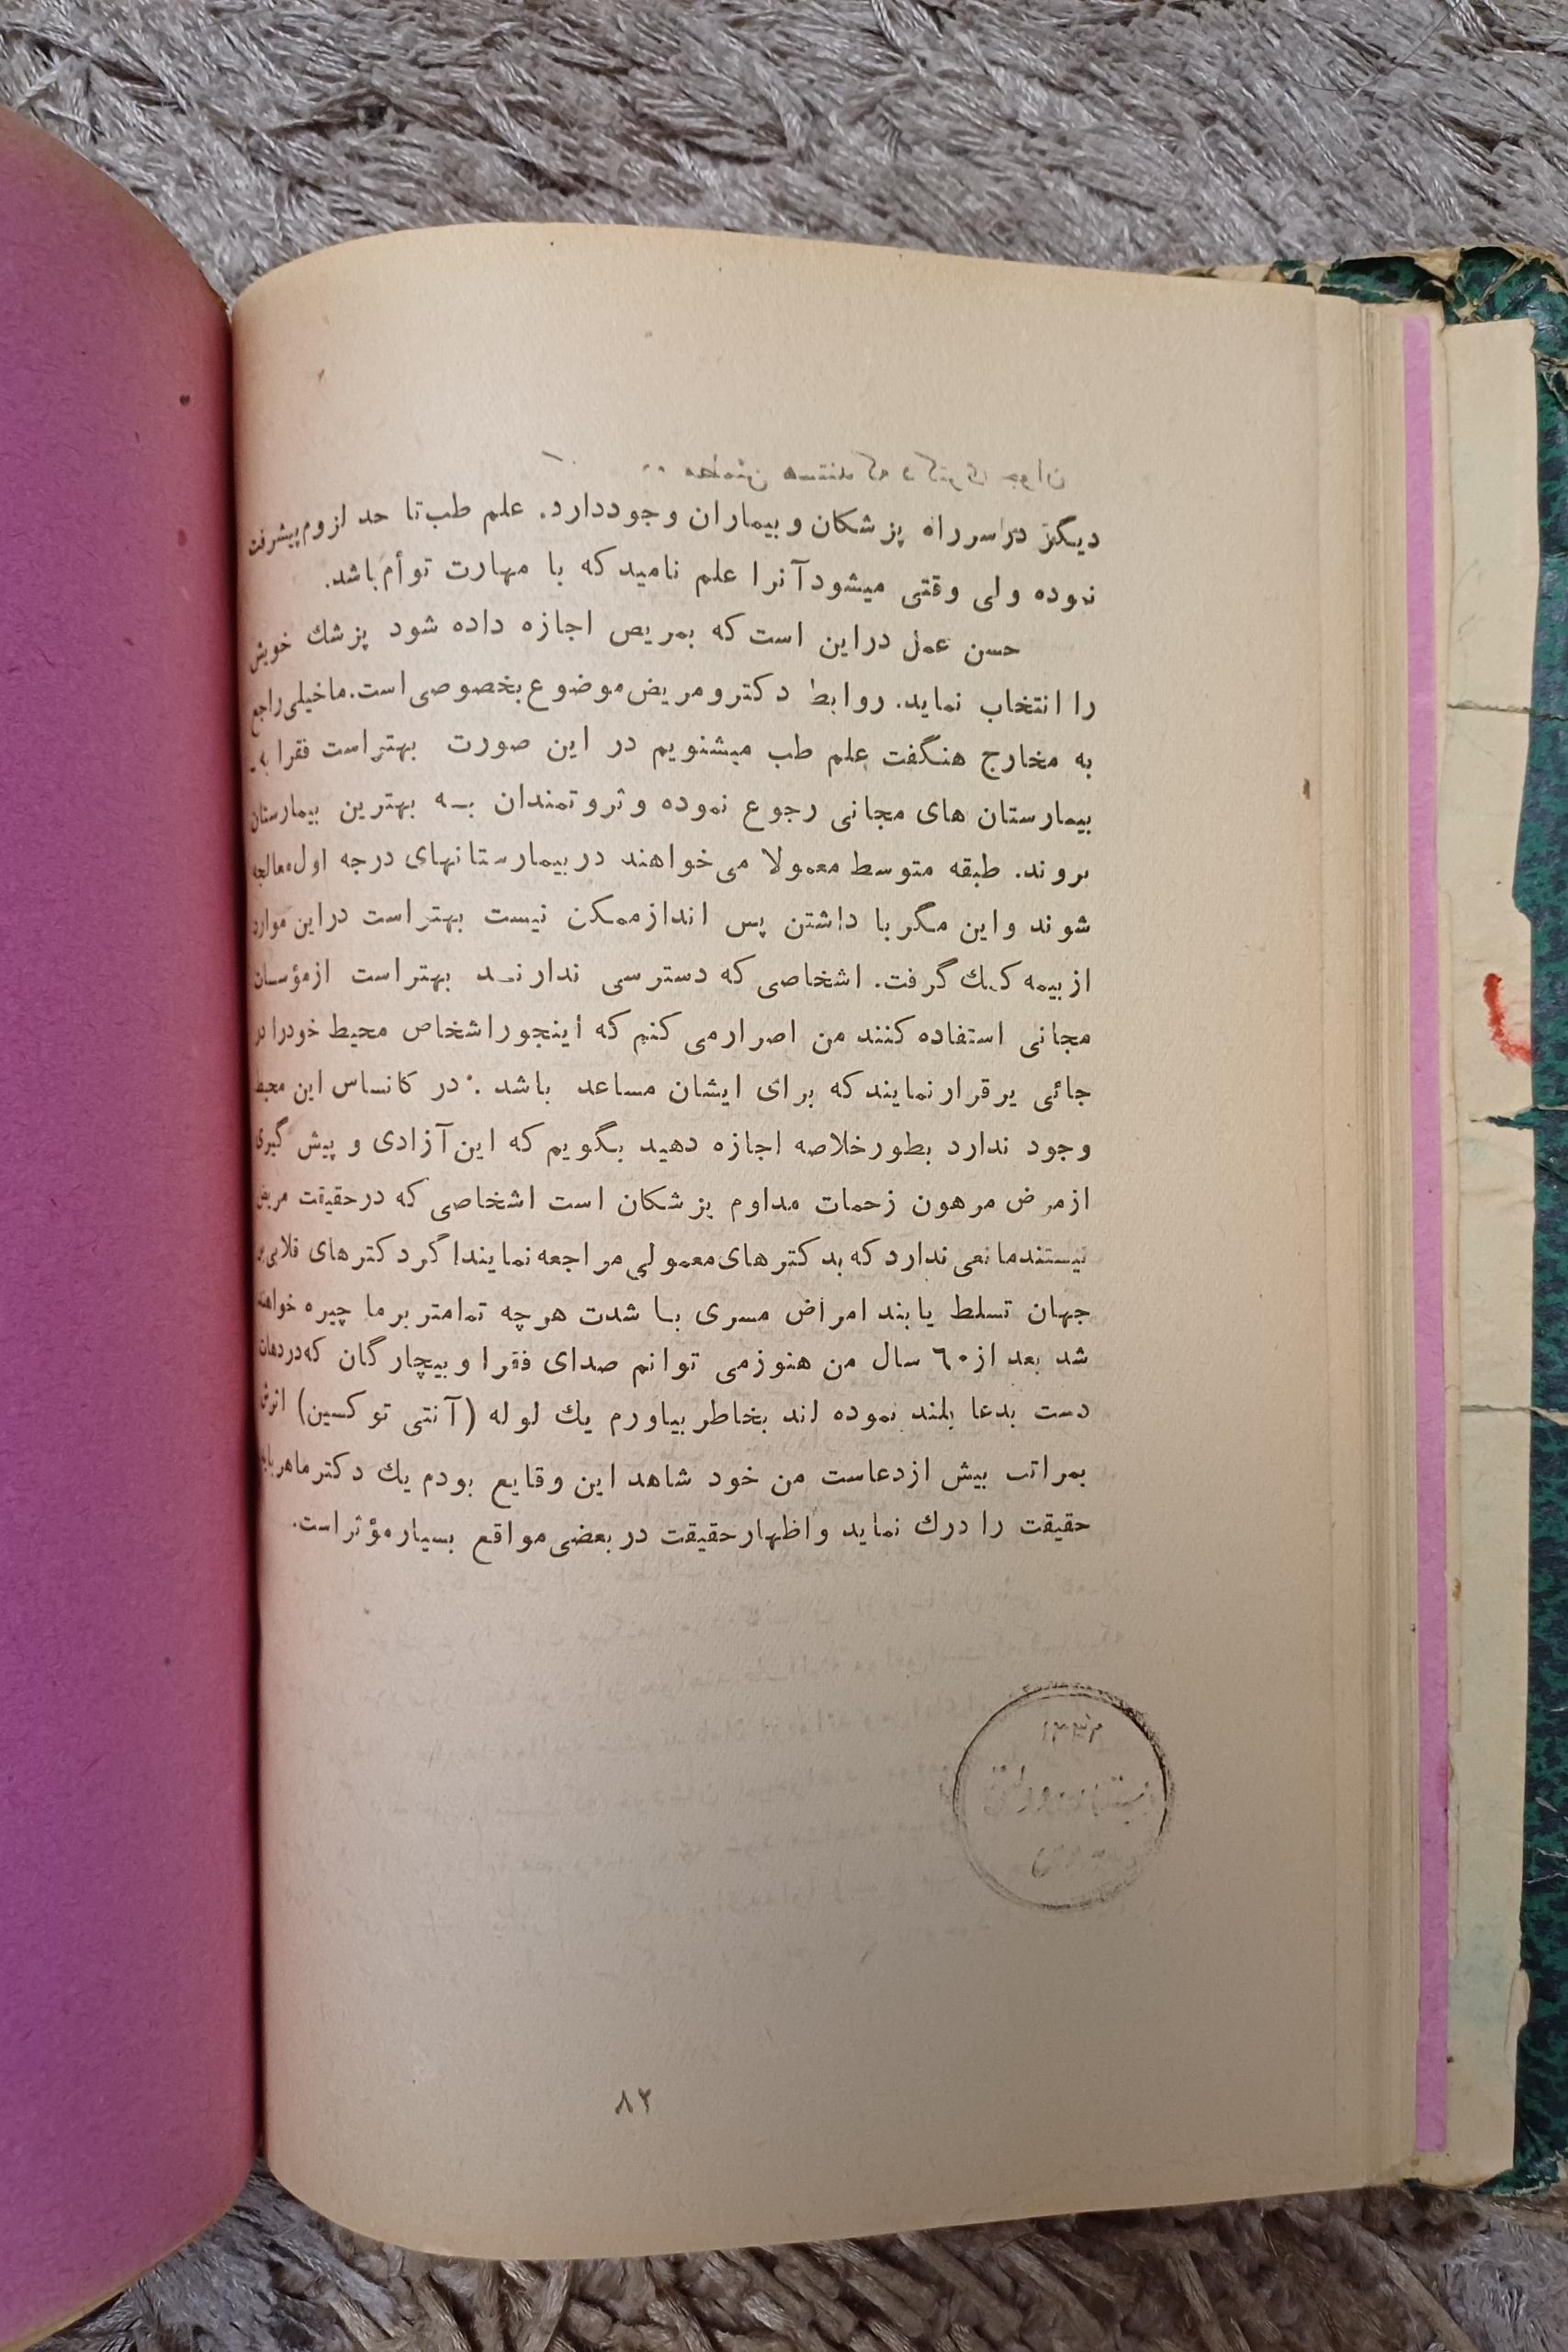 دیگر در سر راه پزشکان و بیماران وجود دارد. علم طب تا حد لزوم پیشرفت
نموده ولی وقتی میشود آنرا علم نامید که با مهارت توأم باشد.
حسن عمل در این است که بمریض اجازه داده شود پزشك خویش
را انتخاب نماید. روابط دکتر و مریض موضوع بخصوصی است. ما خیلی راجع
به مخارج هنگفت علم طب میشنویم در این صورت بهتر است فقرا به
بیمارستان های مجانی رجوع نموده و ثروتمندان به بهترین بیمارستان
بروند. طبقه متوسط معمولا می خواهند در بیمارستانهای درجه اول معالجه
شوند و این مگر با داشتن پس انداز ممکن نیست بهتر است در این موارد
از بیمه کمك گرفت. اشخاصی که دسترسی ندارند بهتر است از مؤسسات
مجانی استفاده کنند من اصرار می کنم که اینجور اشخاص محیط خود را در
جائی برقرار نمایند که برای ایشان مساعد باشد . در کانساس این محیط
وجود ندارد بطور خلاصه اجازه دهید بگویم که این آزادی و پیش گیری
از مرض مرهون زحمات مداوم پزشکان است اشخاصی که در حقیقت مریض
نیستند مانعی ندارد که بدکترهای معمولی مراجعه نمایند اگر دکترهای قلابی بر
جهان تسلط یابند امراض مسری با شدت هر چه تمامتر بر ما چیره خواهند
شد بعد از ٦٠ سال من هنوز می توانم صدای فقرا و بیچارگان که در دهات
دست بدعا بلند نموده اند بخاطر بیاورم یك لوله (آنتی توکسین) اثرش
بمراتب بیش از دعاست من خود شاهد این وقایع بودم یك دکتر ماهر باید
حقیقت را درك نماید و اظهار حقیقت در بعضی مواقع بسیار مؤثر است.
٨٢